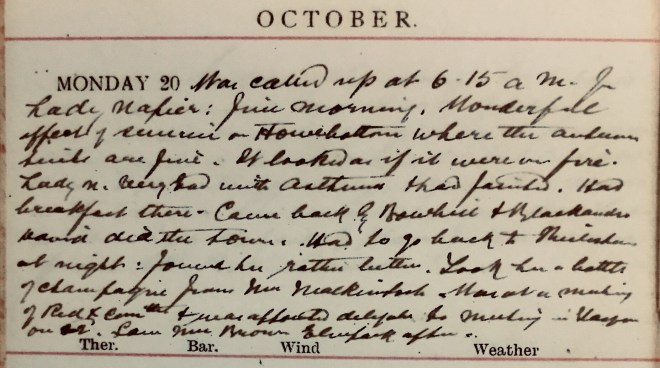 OCTOBER.
MONDAY 20 Was called up at 6.15 a.m. for
Lady Napier: Fine morning. Wonderful
effect of sunrise on Howebottom where the autumn
tints are fine. It looked as if it were on fire.
Lady N. very bad with Asthma & had fainted. Had
breakfast there. Came back by Bowhill & Blackandro
David did the town. Had to go back to Thirlestane
at night: found her rather better. Took her a bottle
of champagne from Mrs Mackintosh. Was at a meeting
of Red X Comttee & was appointed delegate to meeting in Glasgow
on 22. Saw Mrs Brown Elmpark after.
Ther. Bar. Wind Weather